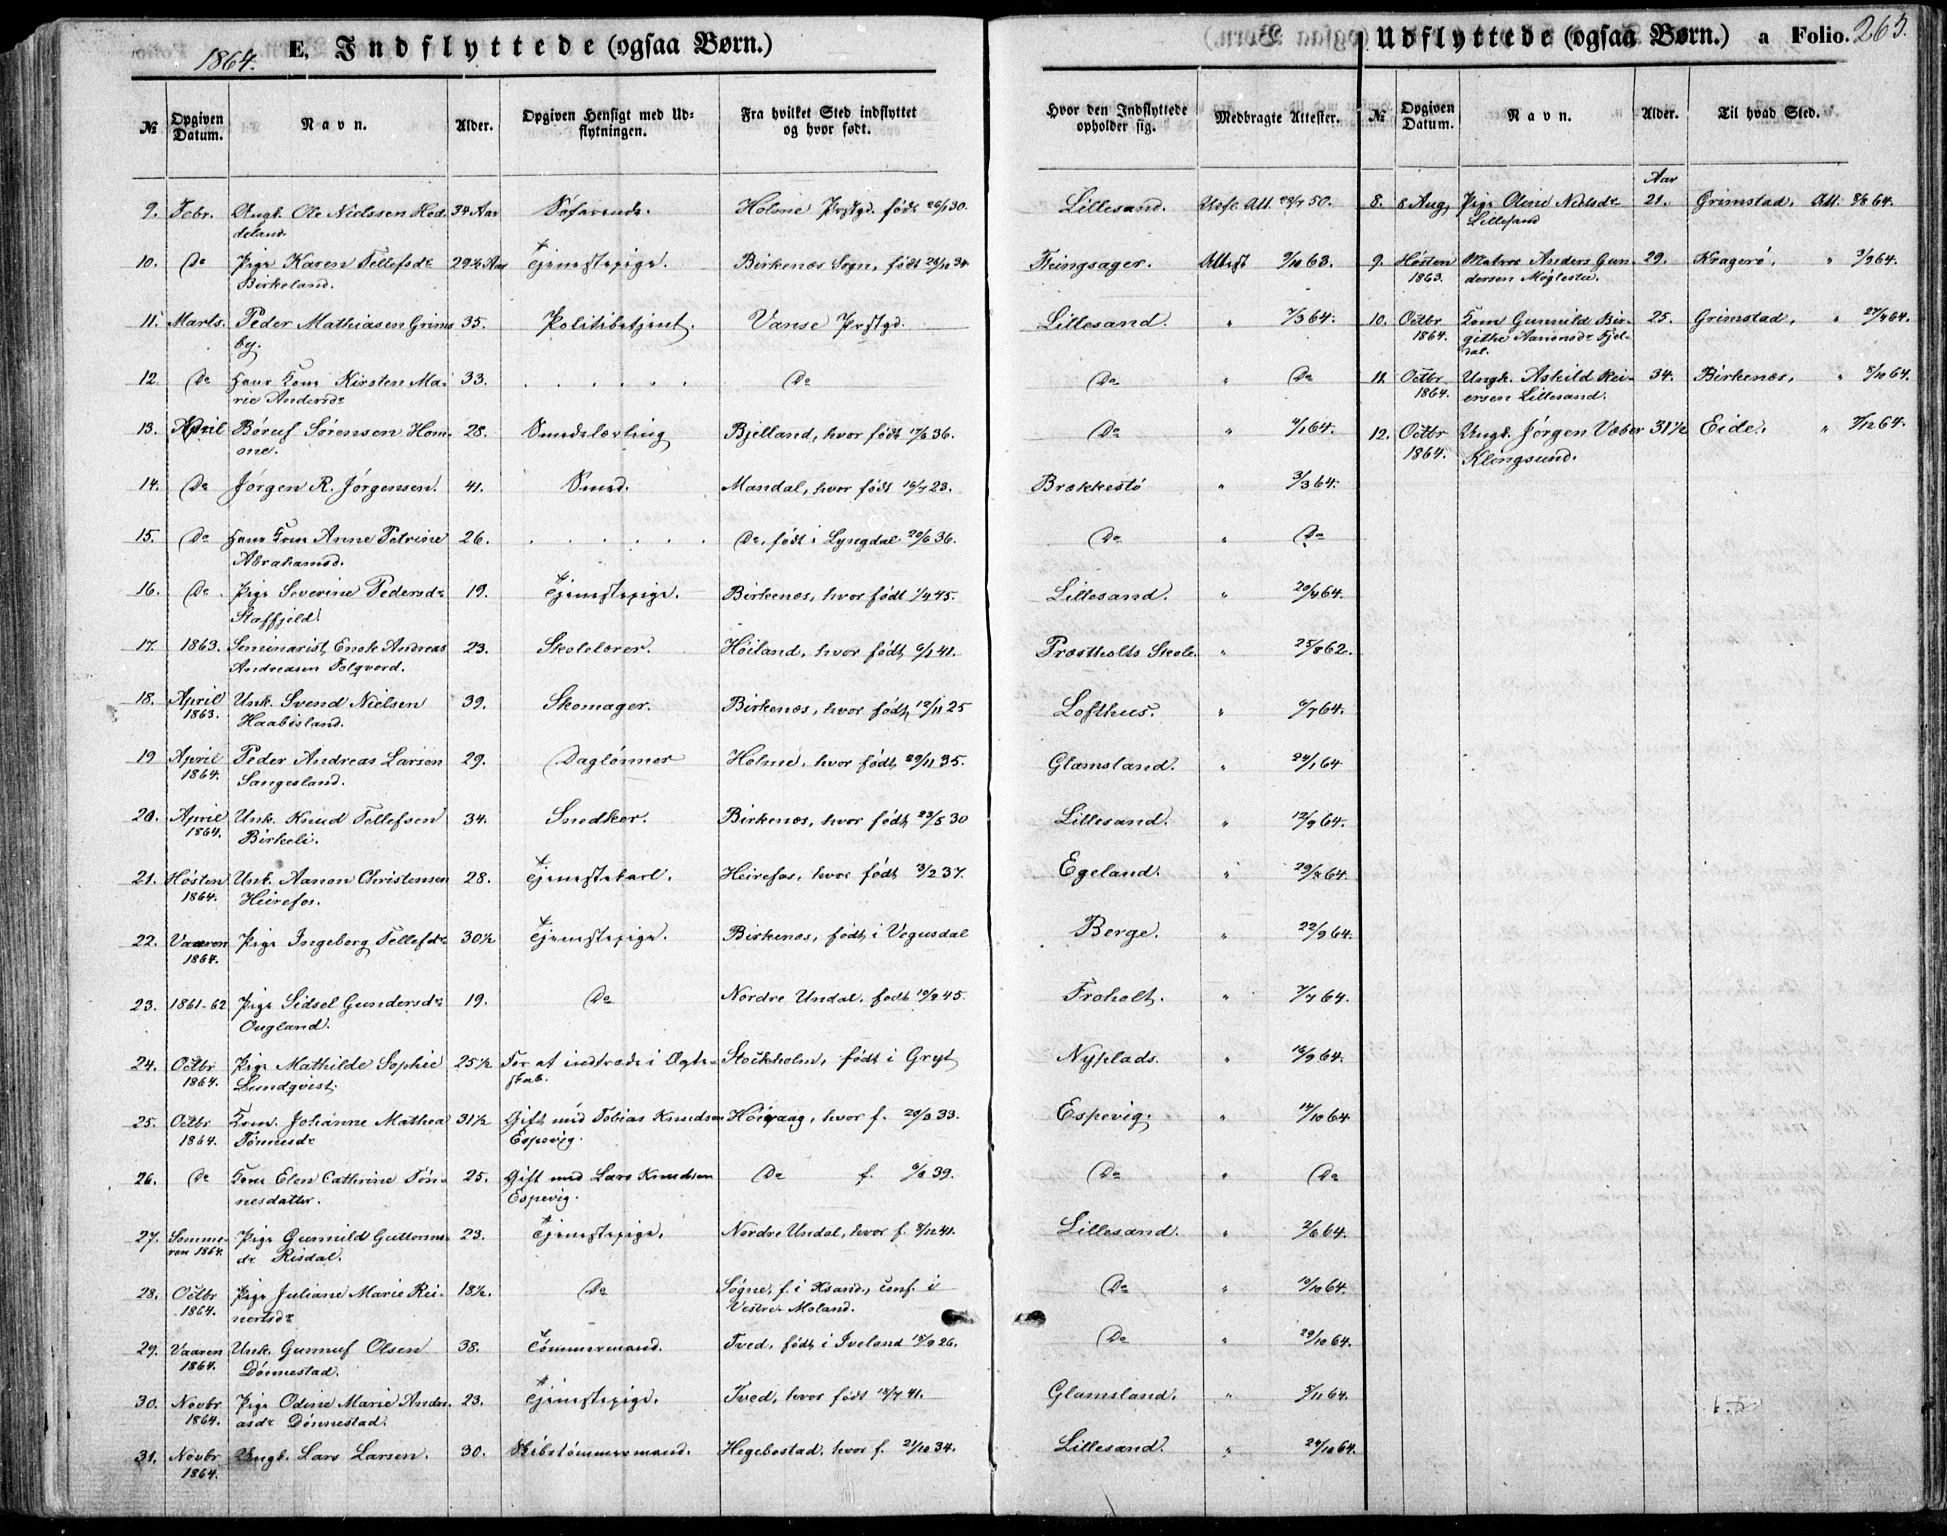 1864.
E. Indflyttede (ogsaa Børn.)
No
Opgiven Datum.
Navn.
Alder.
Opgiven Hensigt med Udflytningen.
Fra hvilket Sted indflyttet og hvor født.
Hvor den Indflyttede opholder sig.
Medbragte Attester.
9. Febr. Ungk. Ole Nielssen Hed- 34 Aar Søfarende. Holme Prstgd. født 26/1 30. Lillesand. Udfl. Att. 50.
deland.
10. Do Pige Karen Tellefsdr 29 Aar Tjenestepige. Birkenæs Sogn, født 34. Tingsager. Attest 9/10 63.
Birkeland.
11. Marts. Peder Mathiasen Grims 35. Politibetjent. Vanse Prstgd. Lillesand. " 7/3 64.
by.
12. Do Hans Kone Kirsten Ma- 33. . . . . . Do Do " Do
rie Andersdr
13. April Børuf Sørensen Hom- 28. Smedelærling Bjelland, hvor født 36. Do " 64.
me.
14. Do Jørgen R. Jørgensen. 41. Smed. Mandal, hvor født 16/7 23. Brækkestø " 3/3 64.
15. Do Hans Kone Anne Petrine 26. . . . . . Do, født i Lyngdal 20/6 36. Do " Do
Abrahamsd.
16. Do Pige Severine Pedersdr 19. Tjenestepige. Birkenæs, hvor født 1/4 45. Lillesand. " 20/4 64.
Stoffjeld.
17. 1863. Seminarist, Enok Andreas 23. Skolelærer. Høiland, hvor født 41. Præstholts Skole. " 25/8 62.
Andreasen Folqvord.
18. April Unk. Svend Nielsen 39. Skomager. Birkenæs, hvor født 12/11 25 Lofthus. " 6/7 64.
1863. Haabesland.
19 April Peder Andreas Larsen 29. Daglønner Holme, hvor født 29/11 35. Glamsland. " 24/1 64
1864. Sangesland.
20. April Unk. Knud Tellefsen 34. Snedker. Birkenæs, hvor født 23/5 30 Lillesand. " 12/9 64.
1864. Birkeli.
21. Høsten Unk. Aanon Christensen 28. Tjenestekarl. Heirefos, hvor født 3/2 37. Egeland. " 64.
1864. Heirefos.
22. Vaaren Pige Ingeborg Tellefsdr 30½ Tjenestepige. Birkenæs, født i Vegusdal Berge. " 22/9 64.
1864.
23. 1861-62 Pige Sidsel Gundersdr 19. Do Nordre Undal, født 45. Froholt. " 7/7 64.
Ougland.
24. Octbr Pige Mathilde Sophie 25½ For at indtræde i Ægte- Stockholm, født i Gryt Nyplads. " 16/9 64.
1864. Lundqvist. skab.
25. Octbr Kone. Johanne Mathea 31½ Gift med Tobias Knudsen Høivaag, hvor f. 33. Espevig. " 14/10 64
1864. Tønnesdr Espevig.
26. Do Kone Elen Cathrine Tøn- 25. Gift med Lars Knudsen Do f. 39. Do " Do
nesdatter. Espevig.
27. Somme- Pige Gunnild Guttorms- 23. Tjenestepige. Nordre Undal, hvor f. 8/12 41. Lillesand. " 2/6 64.
ren 1864. dr Risdal.
28. Octbr Pige Juliane Marie Rei- 18½. Do Søgne, f. i Xsand, conf. i Do " 10/10 64.
1864. nertsdr Vestre Moland.
29. Vaaren Unk. Gunnuf Olsen 38. Tømmermand. Tved, født i Iveland 26. Do " 29/10 64.
1864. Dønnestad.
30. Novbr Pige Odine Marie Andre- 23. Tjenestepige. Tved, hvor født 13/7 41. Glamsland. " 5/11 64.
1864. asdr Dønnestad.
31. Novbr Ungk. Lars Larsen. 30. Skibstømmermand. Hegebostad, hvor f. 21/10 34. Lillesand. " 29/10 64.
1864.
Udflyttede (ogsaa Børn.) a Folio. 265.
No
Opgiven Datum.
Navn.
Alder.
Til hvad Sted.
Aar
8. 8 Aug, Pige Oline Nielsdr 21. Grimstad, Att. 8/8 64.
Lillesand
9. Høsten Matros Anders Gun- 29. Kragerø, " 3/9 64.
1863. dersen Møglestu.
10. Octbr Kone Gunnild Bir- 25. Grimstad, " 27/9 64.
1864. githe Aanonsdr Fjel-
dal.
11. Octbr Ungk. Askild Rei- 34. Birkenæs, " 8/10 64.
1864. ersen Lillesand.
12. Octbr Ungk. Jørgen Væber 31½ Eide. " 64.
1864. Klingsund.